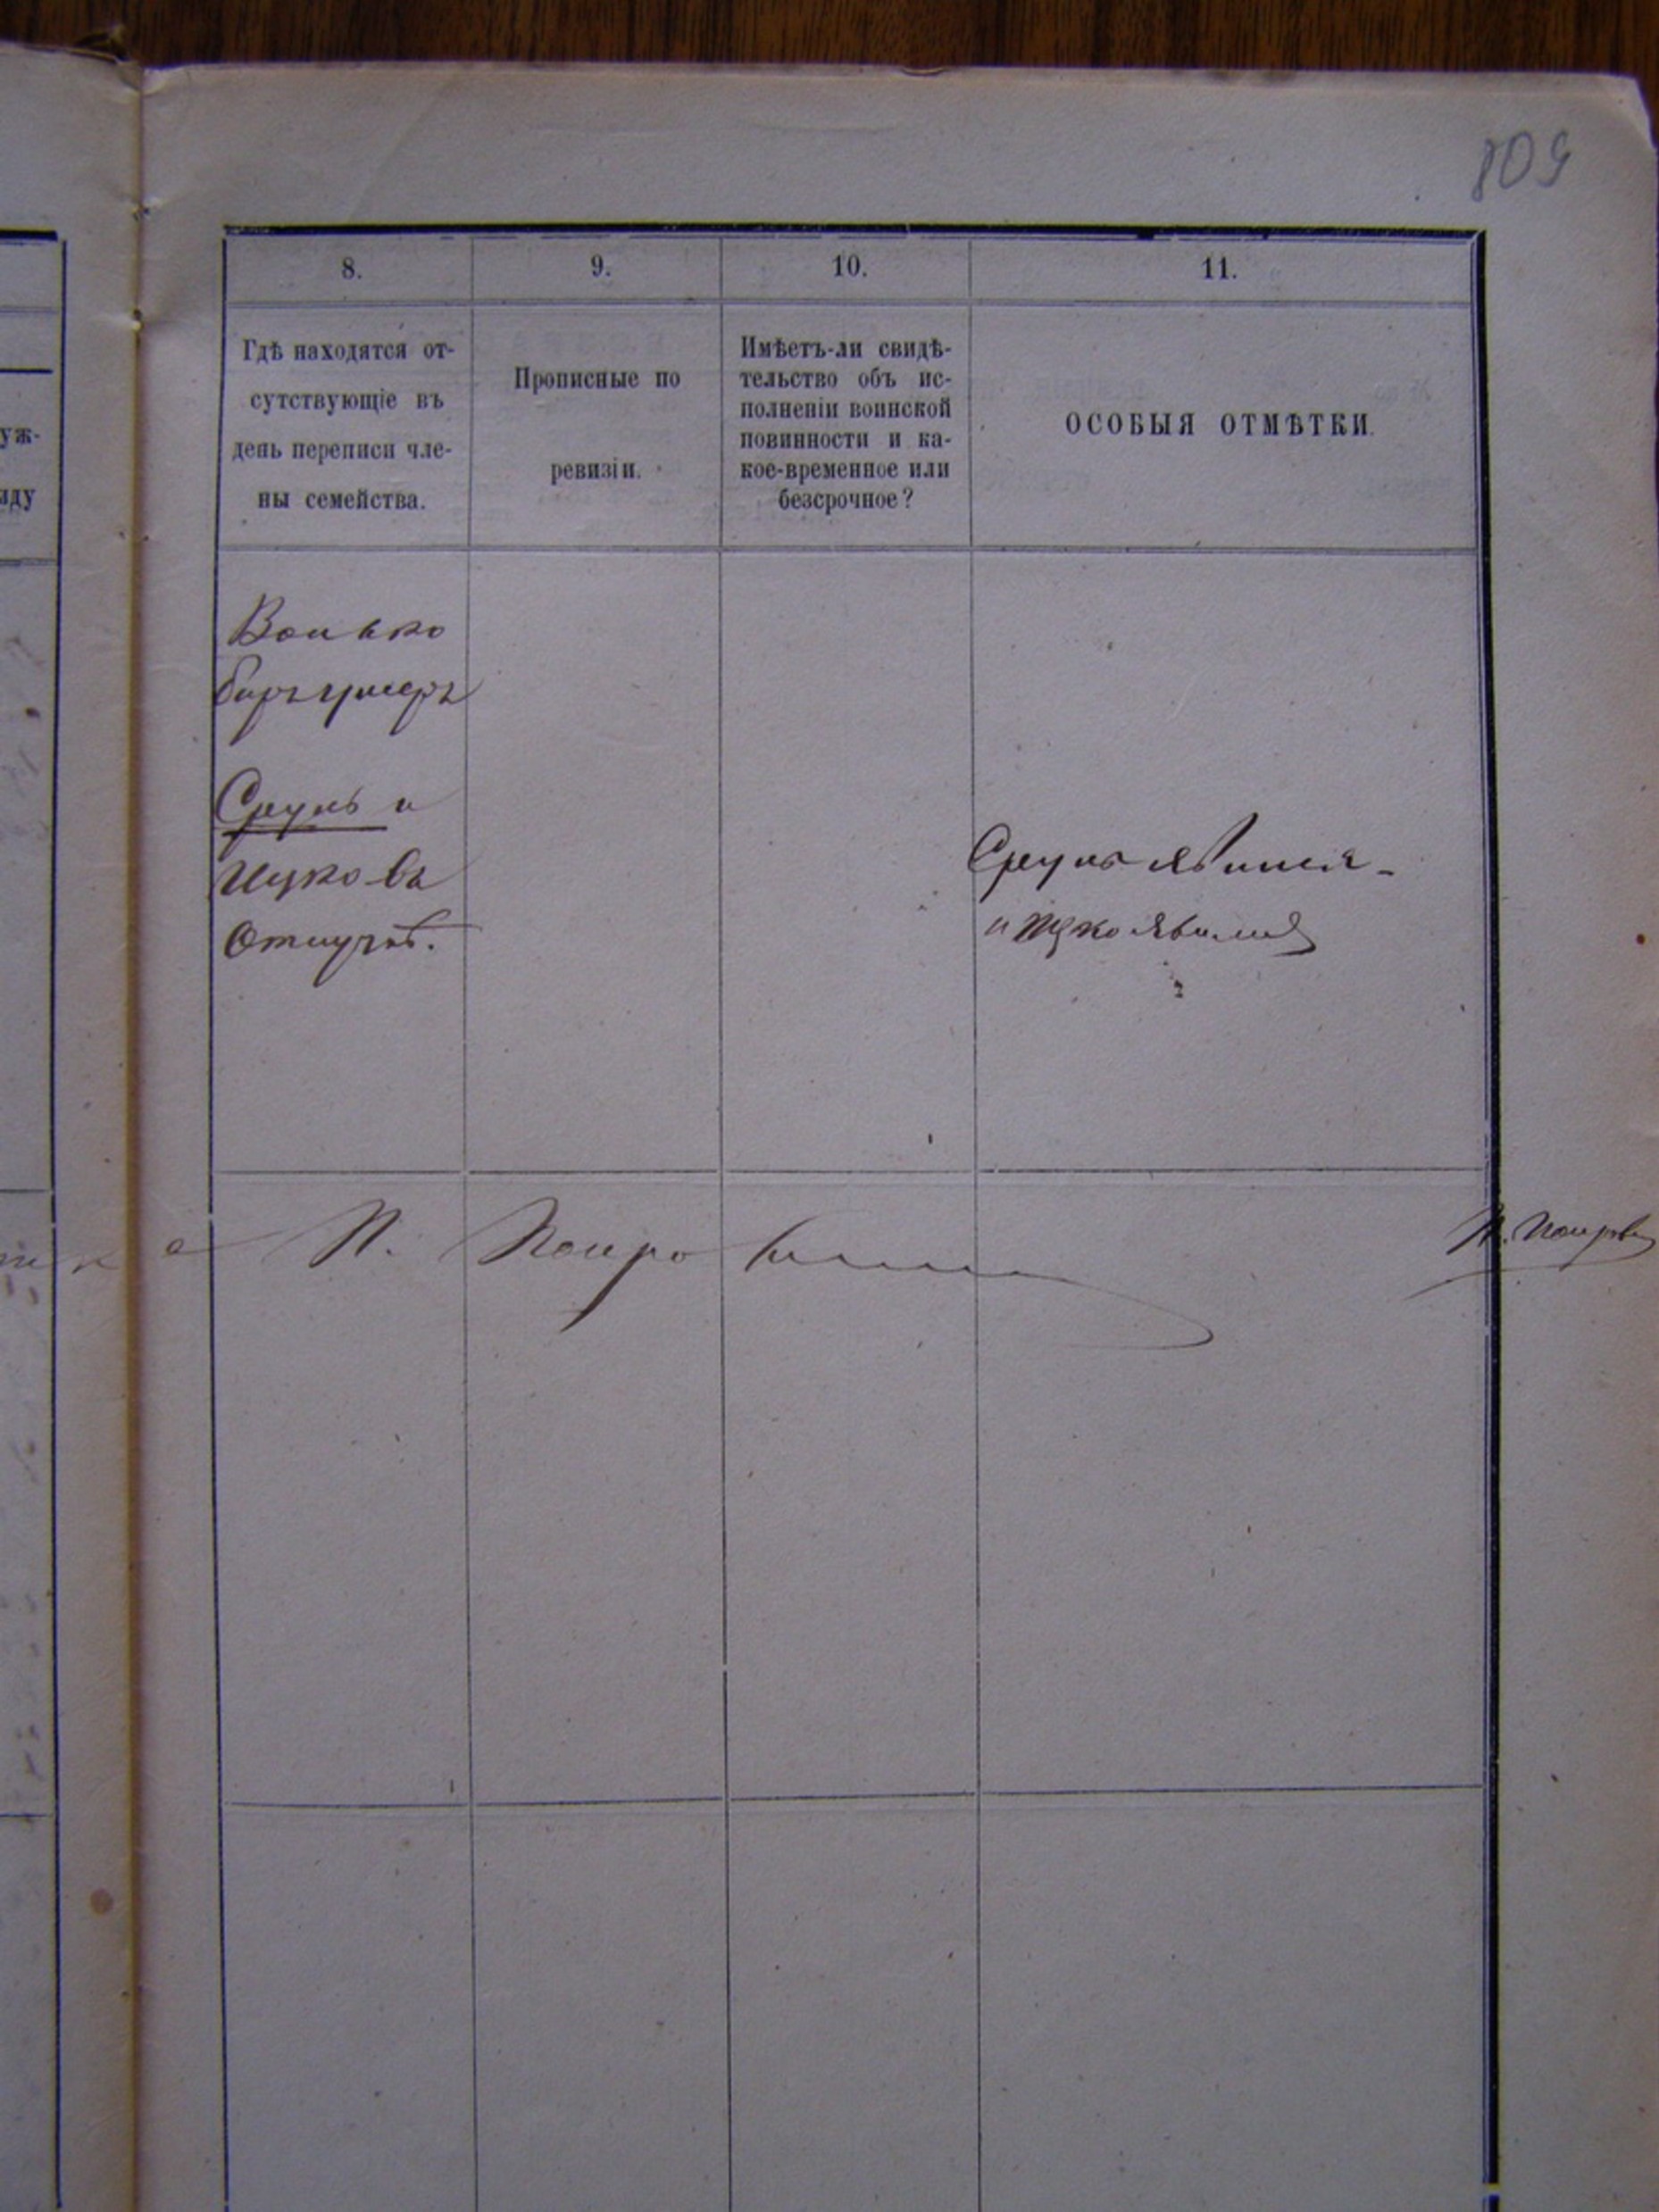 809
8.
9.
10.
11.
Гдѣ находятся от-
сутствующіе въ
день переписи чле-
ны семейства.
Прописные по
ревизіи.
Имѣетъ-ли свидѣ-
тельство объ ис-
полненіи воинской
повинности и ка-
кое-временное или
безсрочное?
ОСОБЫЯ ОТМѢТКИ.
уж-
иду
Сруль и
Ицко въ
Отлучкѣ.
Сруль явился -
и Ицко явился
П.